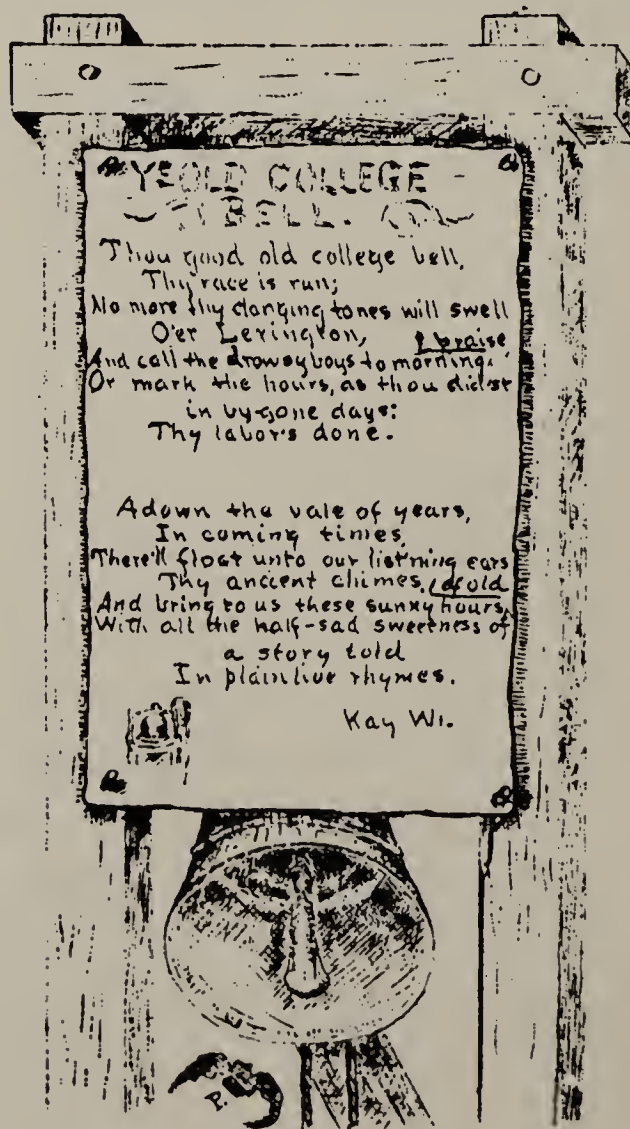 YE OLD COLLEGE -
BELL.
Thou good old college bell,
Thy race is run;
No more thy clanging tones will swell
O'er Lexington,
And call the drowsy boys to morning praise
Or mark the hours, as thou didst
in by-gone days:
Thy labor's done.
Adown the vale of years,
In coming times,
There'll float unto our list'ning ears
Thy ancient chimes,
And bring to us these sunny hours of old
With all the half-sad sweetness of
a story told
In plaintive rhymes.
Kay Wi.
P.